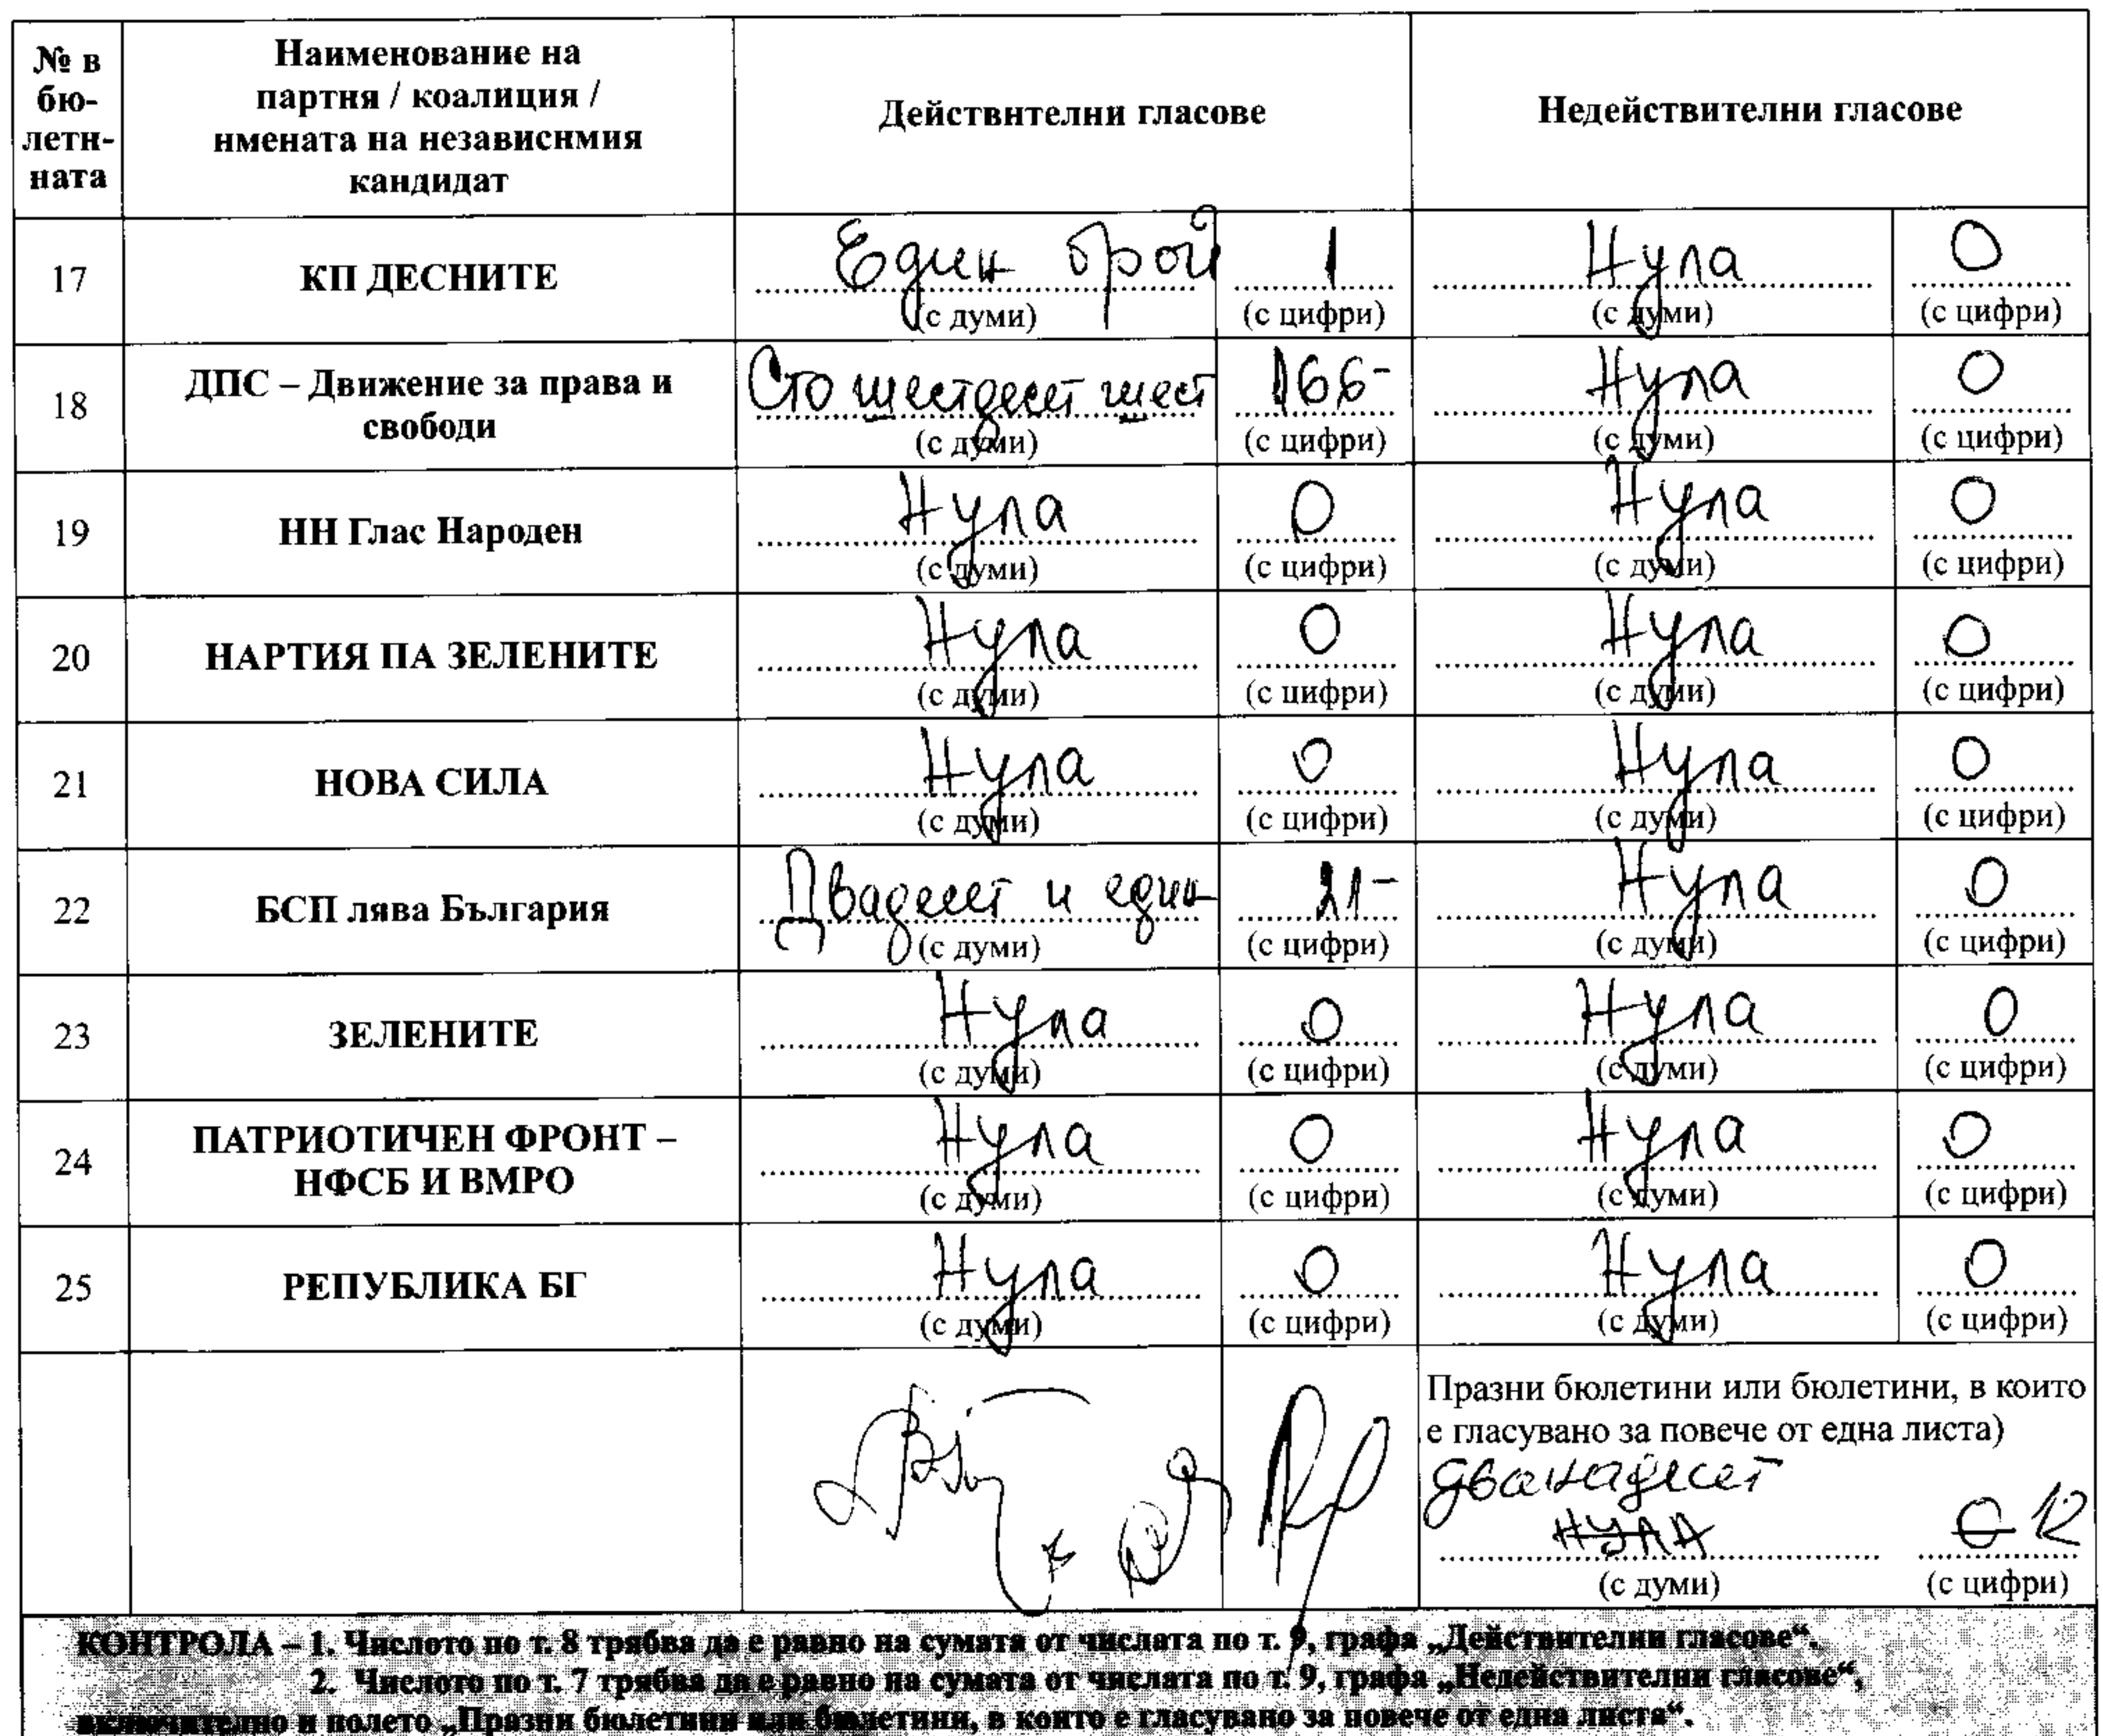 № в бю-летн-ната
Наименование на партня / коалиция / нмената на независнмия кандидат
Действнтелни гласове
Недействителни гласове
17 КП ДЕСНИТЕ Един брой 1 Нула 0
(с думи) (с цифри) (с думи) (с цифри)
18 ДПС – Движение за права и свободи Сто шестдесет шест 166- Нула 0
(с думи) (с цифри) (с думи) (с цифри)
19 НН Глас Народен Нула 0 Нула 0
(с думи) (с цифри) (с думи) (с цифри)
20 НАРТИЯ ПА ЗЕЛЕНИТЕ Нула 0 Нула 0
(с думи) (с цифри) (с думи) (с цифри)
21 НОВА СИЛА Нула 0 Нула 0
(с думи) (с цифри) (с думи) (с цифри)
22 БСП лява България Двадесет и един 21- Нула 0
(с думи) (с цифри) (с думи) (с цифри)
23 ЗЕЛЕНИТЕ Нула 0 Нула 0
(с думи) (с цифри) (с думи) (с цифри)
24 ПАТРИОТИЧЕН ФРОНТ – НФСБ И ВМРО Нула 0 Нула 0
(с думи) (с цифри) (с думи) (с цифри)
25 РЕПУБЛИКА БГ Нула 0 Нула 0
(с думи) (с цифри) (с думи) (с цифри)
Празни бюлетини или бюлетини, в които
е гласувано за повече от една листа)
дванадесет
НУЛА 0 12
(с думи) (с цифри)
КОНТРОЛА – 1. Числото по т. 8 трябва да е равно на сумата от числата по т. 9, графа „Действителни гласове“.
2. Числото по т. 7 трябва да е равно на сумата от числата по т. 9, графа „Недействителни гласове“,
включително и полето „Празни бюлетини или бюлетини, в които е гласувано за повече от една листа“.